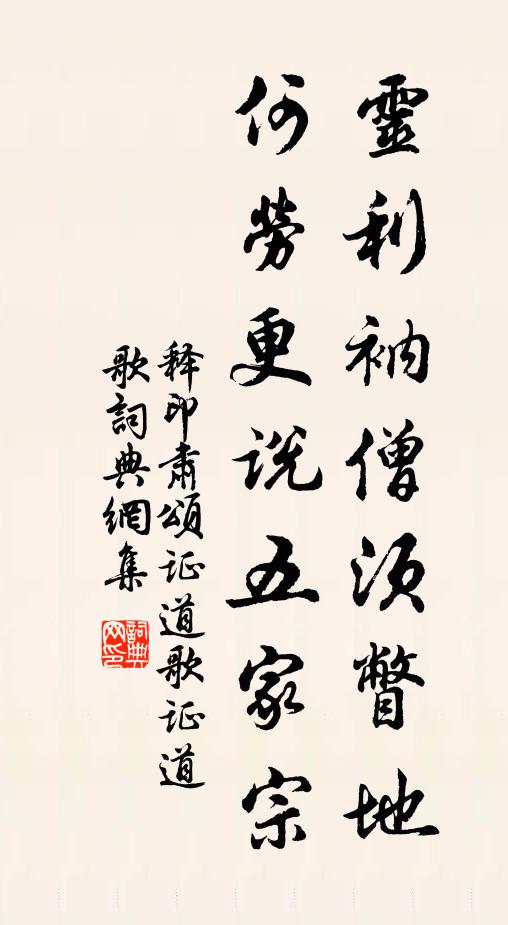 靈利衲僧須瞥地
何勞更説五家宗
释印肅頌证道歌证道
歌詞典網集
詞典
网印